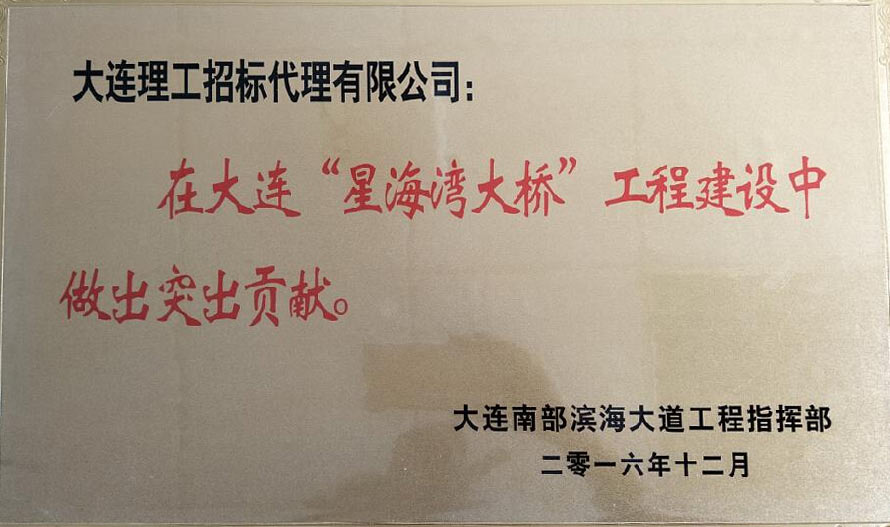 大连理工招标代理有限公司：
在大连“星海湾大桥”工程建设中
做出突出贡献。
大连南部滨海大道工程指挥部
二零一六年十二月